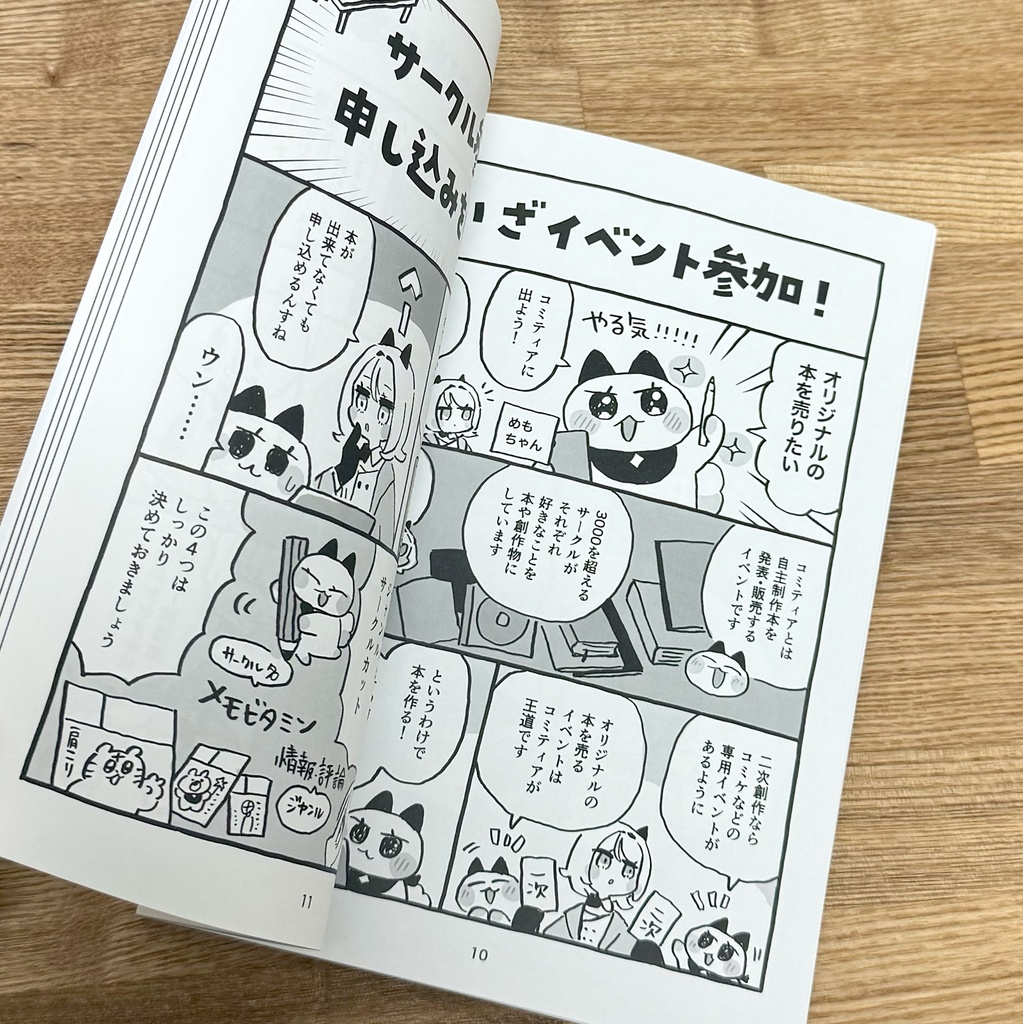 いざイベント参加!
オリジナルの
本を売りたい
やる気!!!!!
コミティアに
出よう!
めも
ちゃん
コミティアとは
自主制作本を
発表・販売する
イベントです
3000を超える
サークルが
それぞれ
好きなことを
本や創作物に
しています
二次創作なら
コミケなどの
専用イベントが
あるように
二次
二次
オリジナルの
本を売る
イベントは
コミティアが
王道です
というわけで
本を作る!
10
サークル
申し込みを
本が
出来てなくても
申し込めるんすね
へー
ウン……
この4つは
しっかり
決めておきましょう
サークルカット
サークル名
メモビタミン
情報・評論
ジャンル
肩こり
11